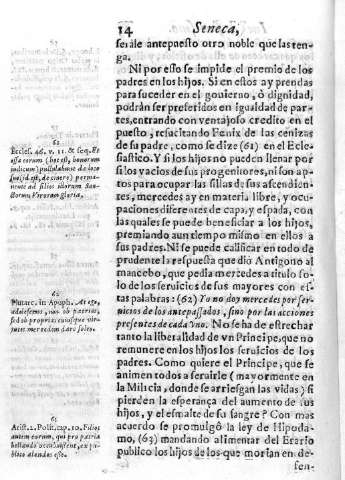 14 Seneca,
serále antepuesto otro noble que las ten-
ga.
Ni por esto se impide el premio de los
padres en los hijos. Si en estos ay prendas
para suceder en el gouierno, ò dignidad,
podràn ser preferidos en igualdad de par-
tes, entrando con ventajoso credito en el
puesto, resucitando Fenix de las cenizas
de su padre, como se dize (61) en el Ecle-
siastico. Y si los hijos no pueden llenar por
si los vacios de sus progenitores, ni son ap-
tos para ocupar las sillas de sus ascendien-
tes, mercedes ay en materia libre, y ocu-
paciones diferentes de capa, y espada, con
las quales se puede beneficiar a los hijos,
premiando aun tiempo mismo en ellos a
sus padres. Ni se puede calificar en todo de
prudente la respuesta que diò Antigono al
mancebo, que pedia mercedes a titulo so-
lo de los seruicios de sus mayores con es-
tas palabras: (62) Yo no doy mercedes por ser-
uicios de los antepassados, sino por las acciones
presentes de cada vno. No se ha de estrechar
tanto la liberalidad de vn Principe, que no
remunere en los hijos los seruicios de los
padres. Como quiere el Principe, que se
animen todos a seruirle (mayormente en
la Milicia, donde se arriesgan las vidas) si
pierden la esperança del aumento de sus
hijos, y el esmalte de su sangre? Con mas
acuerdo se promulgò la ley de Hipoda-
mo, (63) mandando alimentar del Erario
publico los hijos de los que morian en de-
fen-
61
Eccles. 46. v. 11. & seq. Et
ossa eorum (hoc est, bonorum
iudicum) pullulabunt de loco
suo
ad filios illorum San-
ctorum Virorum gloria.
62
Plutarc. in Apoph. At ego,
adolescens, non ob patrias,
sed ob proprias cuiusque vir-
tutes mercedem dare soleo.
63
Arist. 2. Polit. cap. 10. Filios
autem eorum, qui pro patria
bellando occubuissent, ex pu-
blico alendos esse.